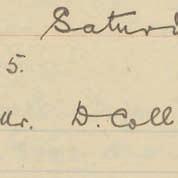 Satur
5.
Mr. D. Coll